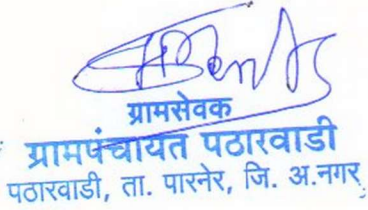 ग्रामसेवक
ग्रामपंचायत पठारवाडी
पठारवाडी, ता. पारनेर, जि. अ.नगर